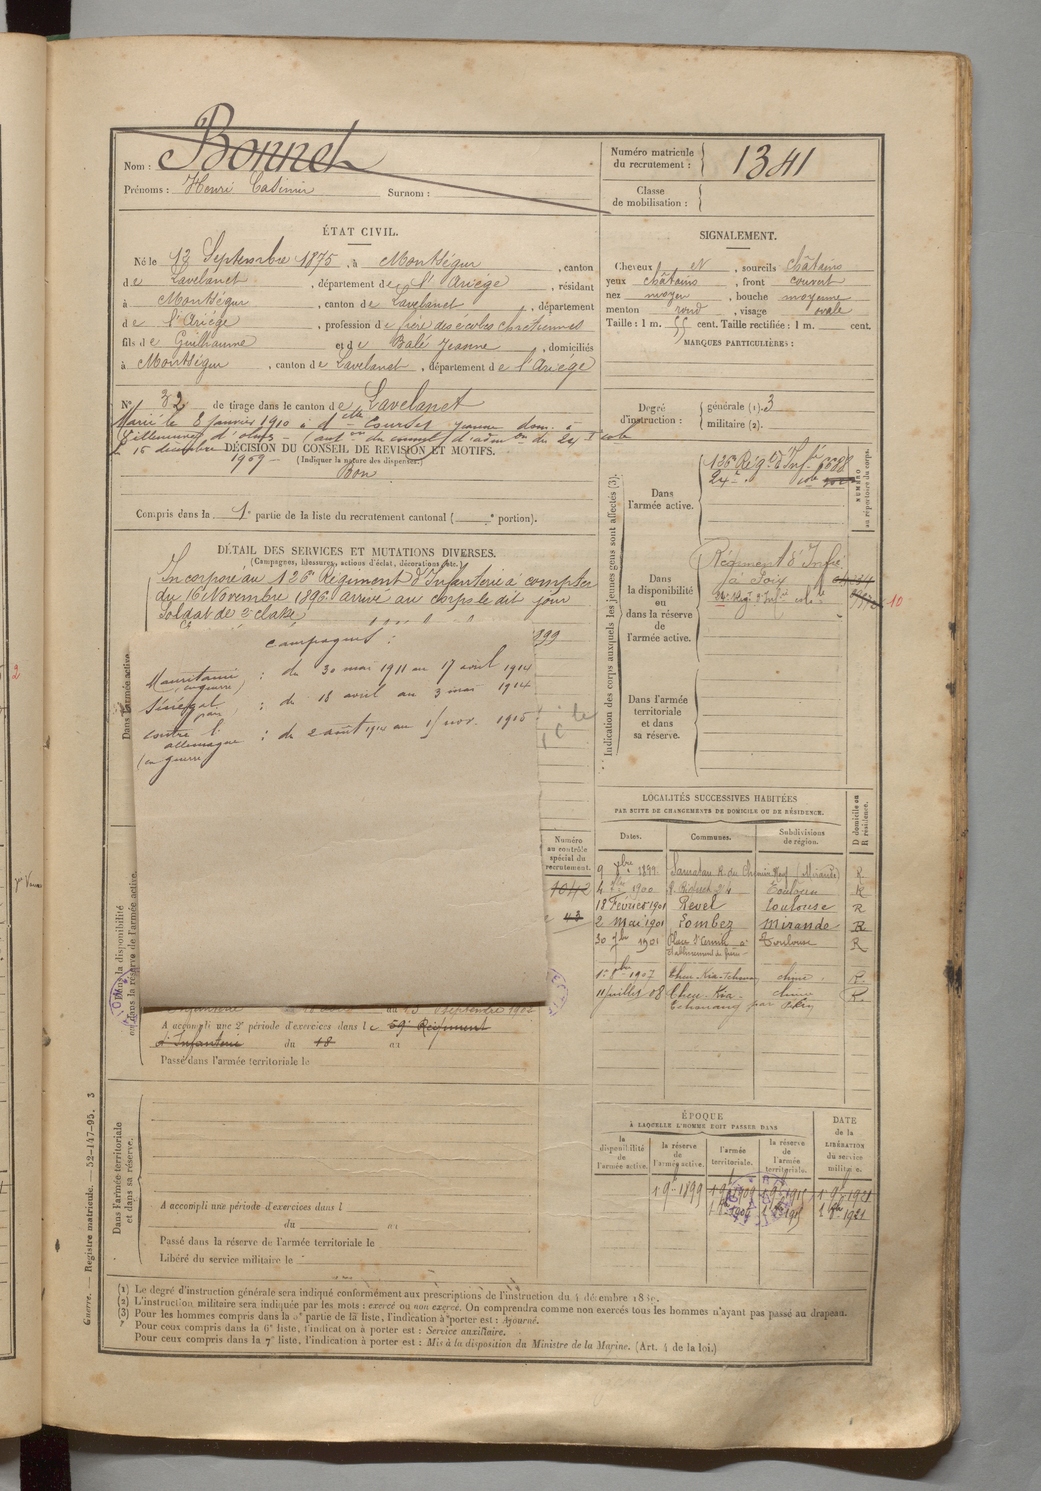 Nom : Bonnet
Prénoms : Henri Casimir Surnom :
Numéro matricule du recrutement : 1341
Classe de mobilisation :
ÉTAT CIVIL.
Né le 13 Septembre 1875, à Montségur, canton
de Lavelanet, département de l'Ariége, résidant
à Montségur, canton de Lavelanet, département
de l'Ariége, profession de frère des écoles chrétiennes
fils de Guilhaume et de Balé Jeanne, domiciliés
à Montségur, canton de Lavelanet, département de l'Ariége
N° 32 de tirage dans le canton de Lavelanet
Marié le 8 janvier 1910 à delle Courset Jeanne dom. à
Villeneuve d'olmes (aut. du conseil d'adm on du 24 I cole
15 décembre 1909
DÉCISION DU CONSEIL DE REVISION ET MOTIFS.
(Indiquer la nature des dispenses.)
Bon
Compris dans la 1e partie de la liste du recrutement cantonal ( e portion).
SIGNALEMENT.
Cheveux et, sourcils châtains
yeux châtains, front couvert
nez moyen, bouche moyenne
menton rond, visage ovale
Taille : 1 m. 55 cent. Taille rectifiée : 1 m. cent.
MARQUES PARTICULIÈRES :
Degré d'instruction : générale (1). 3
militaire (2).
DÉTAIL DES SERVICES ET MUTATIONS DIVERSES.
(Campagnes, blessures, actions d'éclat, décorations, etc.)
Incorporé au 126e Régiment d'Infanterie à compter
du 16 Novembre 1896 arrivé au corps le dit jour
Soldat de 2e classe
899
campagnes :
Mauritanie (en guerre) : du 30 mai 1911 au 17 avril 1914
Sénégal : du 18 avril au 3 mai 1914
contre l'allemagne (en guerre) : du 2 août 1914 au 15 nov. 1915
Dans l'armée active
Dans la disponibilité ou dans la réserve de l'armée active.
Numéro au contrôle spécial du recrutement.
1042
43
septembre 190
A accompli une 2e période d'exercices dans le 59e Régiment
d'Infanterie du 18 au
Passé dans l'armée territoriale le
Dans l'armée territoriale et dans sa réserve.
A accompli une période d'exercices dans l
du au
Passé dans la réserve de l'armée territoriale le
Libéré du service militaire le
Indication des corps auxquels les jeunes gens sont affectés (3).
NUMÉRO au répertoire du corps.
Dans l'armée active.
126e Rég. d'Inf.
24e cole
Dans la disponibilité ou dans la réserve de l'armée active.
Régiment d'Infie
à Foix
10
Dans l'armée territoriale et dans sa réserve.
LOCALITÉS SUCCESSIVES HABITÉES
PAR SUITE DE CHANGEMENTS DE DOMICILE OU DE RÉSIDENCE.
Dates. Communes. Subdivisions de région. D domicile ou R résidence.
9 7bre 1899 (Mirande) R
4 1900 Toulouse R
18 Février 1901 Revel Toulouse R
2 Mai 1901 Lombez Mirande R
30 7bre 1901 Toulouse R
1er 8bre 1907 Chine R
11 juillet 08 Chine R
ÉPOQUE
À LAQUELLE L'HOMME DOIT PASSER DANS
la disponibilité de l'armée active.
la réserve de l'armée active.
l'armée territoriale.
la réserve de l'armée territoriale.
DATE de la LIBÉRATION du service militaire.
1 9e 1899 1 9e 1909 1 9e 1915 1 9e 1921
Guerre. — Registre matricule. — 52-147-95. 3
(1) Le degré d'instruction générale sera indiqué conformément aux prescriptions de l'instruction du 4 décembre 18
(2) L'instruction militaire sera indiquée par les mots : exercé ou non exercé. On comprendra comme non exercés tous les hommes n'ayant pas passé au drapeau.
(3) Pour les hommes compris dans la partie de la liste, l'indication à porter est : Ajourné.
Pour ceux compris dans la 6e liste, l'indication à porter est : Service auxiliaire.
Pour ceux compris dans la 7e liste, l'indication à porter est : Mis à la disposition du Ministre de la Marine. (Art. 4 de la loi.)